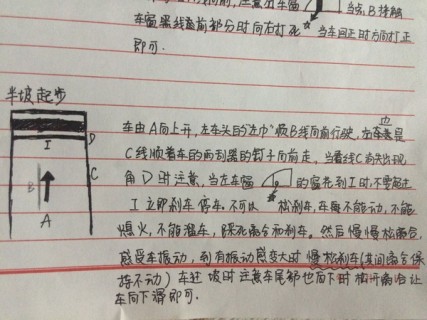 当点B接触
车窗黑线盖前部分时向右打死 当车回正时方向打正
即可.
半坡起步
I
D
C
B
A
车由A向上开,左车头的"左巾"顺B线向前行驶,
C线顺着车的雨刮器的钉子向前走,当看线C消失出现
角D时注意,当左车窗 的窗花到I时,不要超过
I立即刹车停车.不可以 松刹车,车每不能动,不能
熄火,不能溜车,踩死离合和刹车.然后慢慢松离合,
感受车振动,到有振动感变大时慢松刹车(其间离合保
持不动)车过坡时注意车尾部也向下时松开离合让
车向下滑即可.